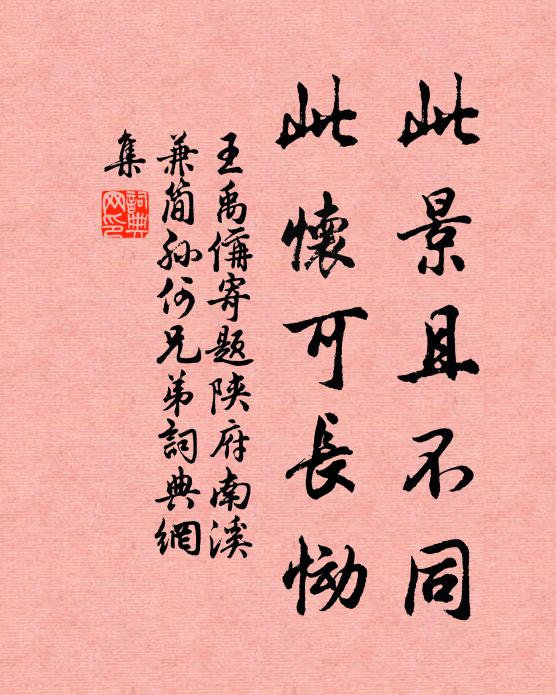 此景且不同
此懷可長慟
王禹偁寄題陝府南溪
兼简孙何兄弟詞典網
集
詞典
网印